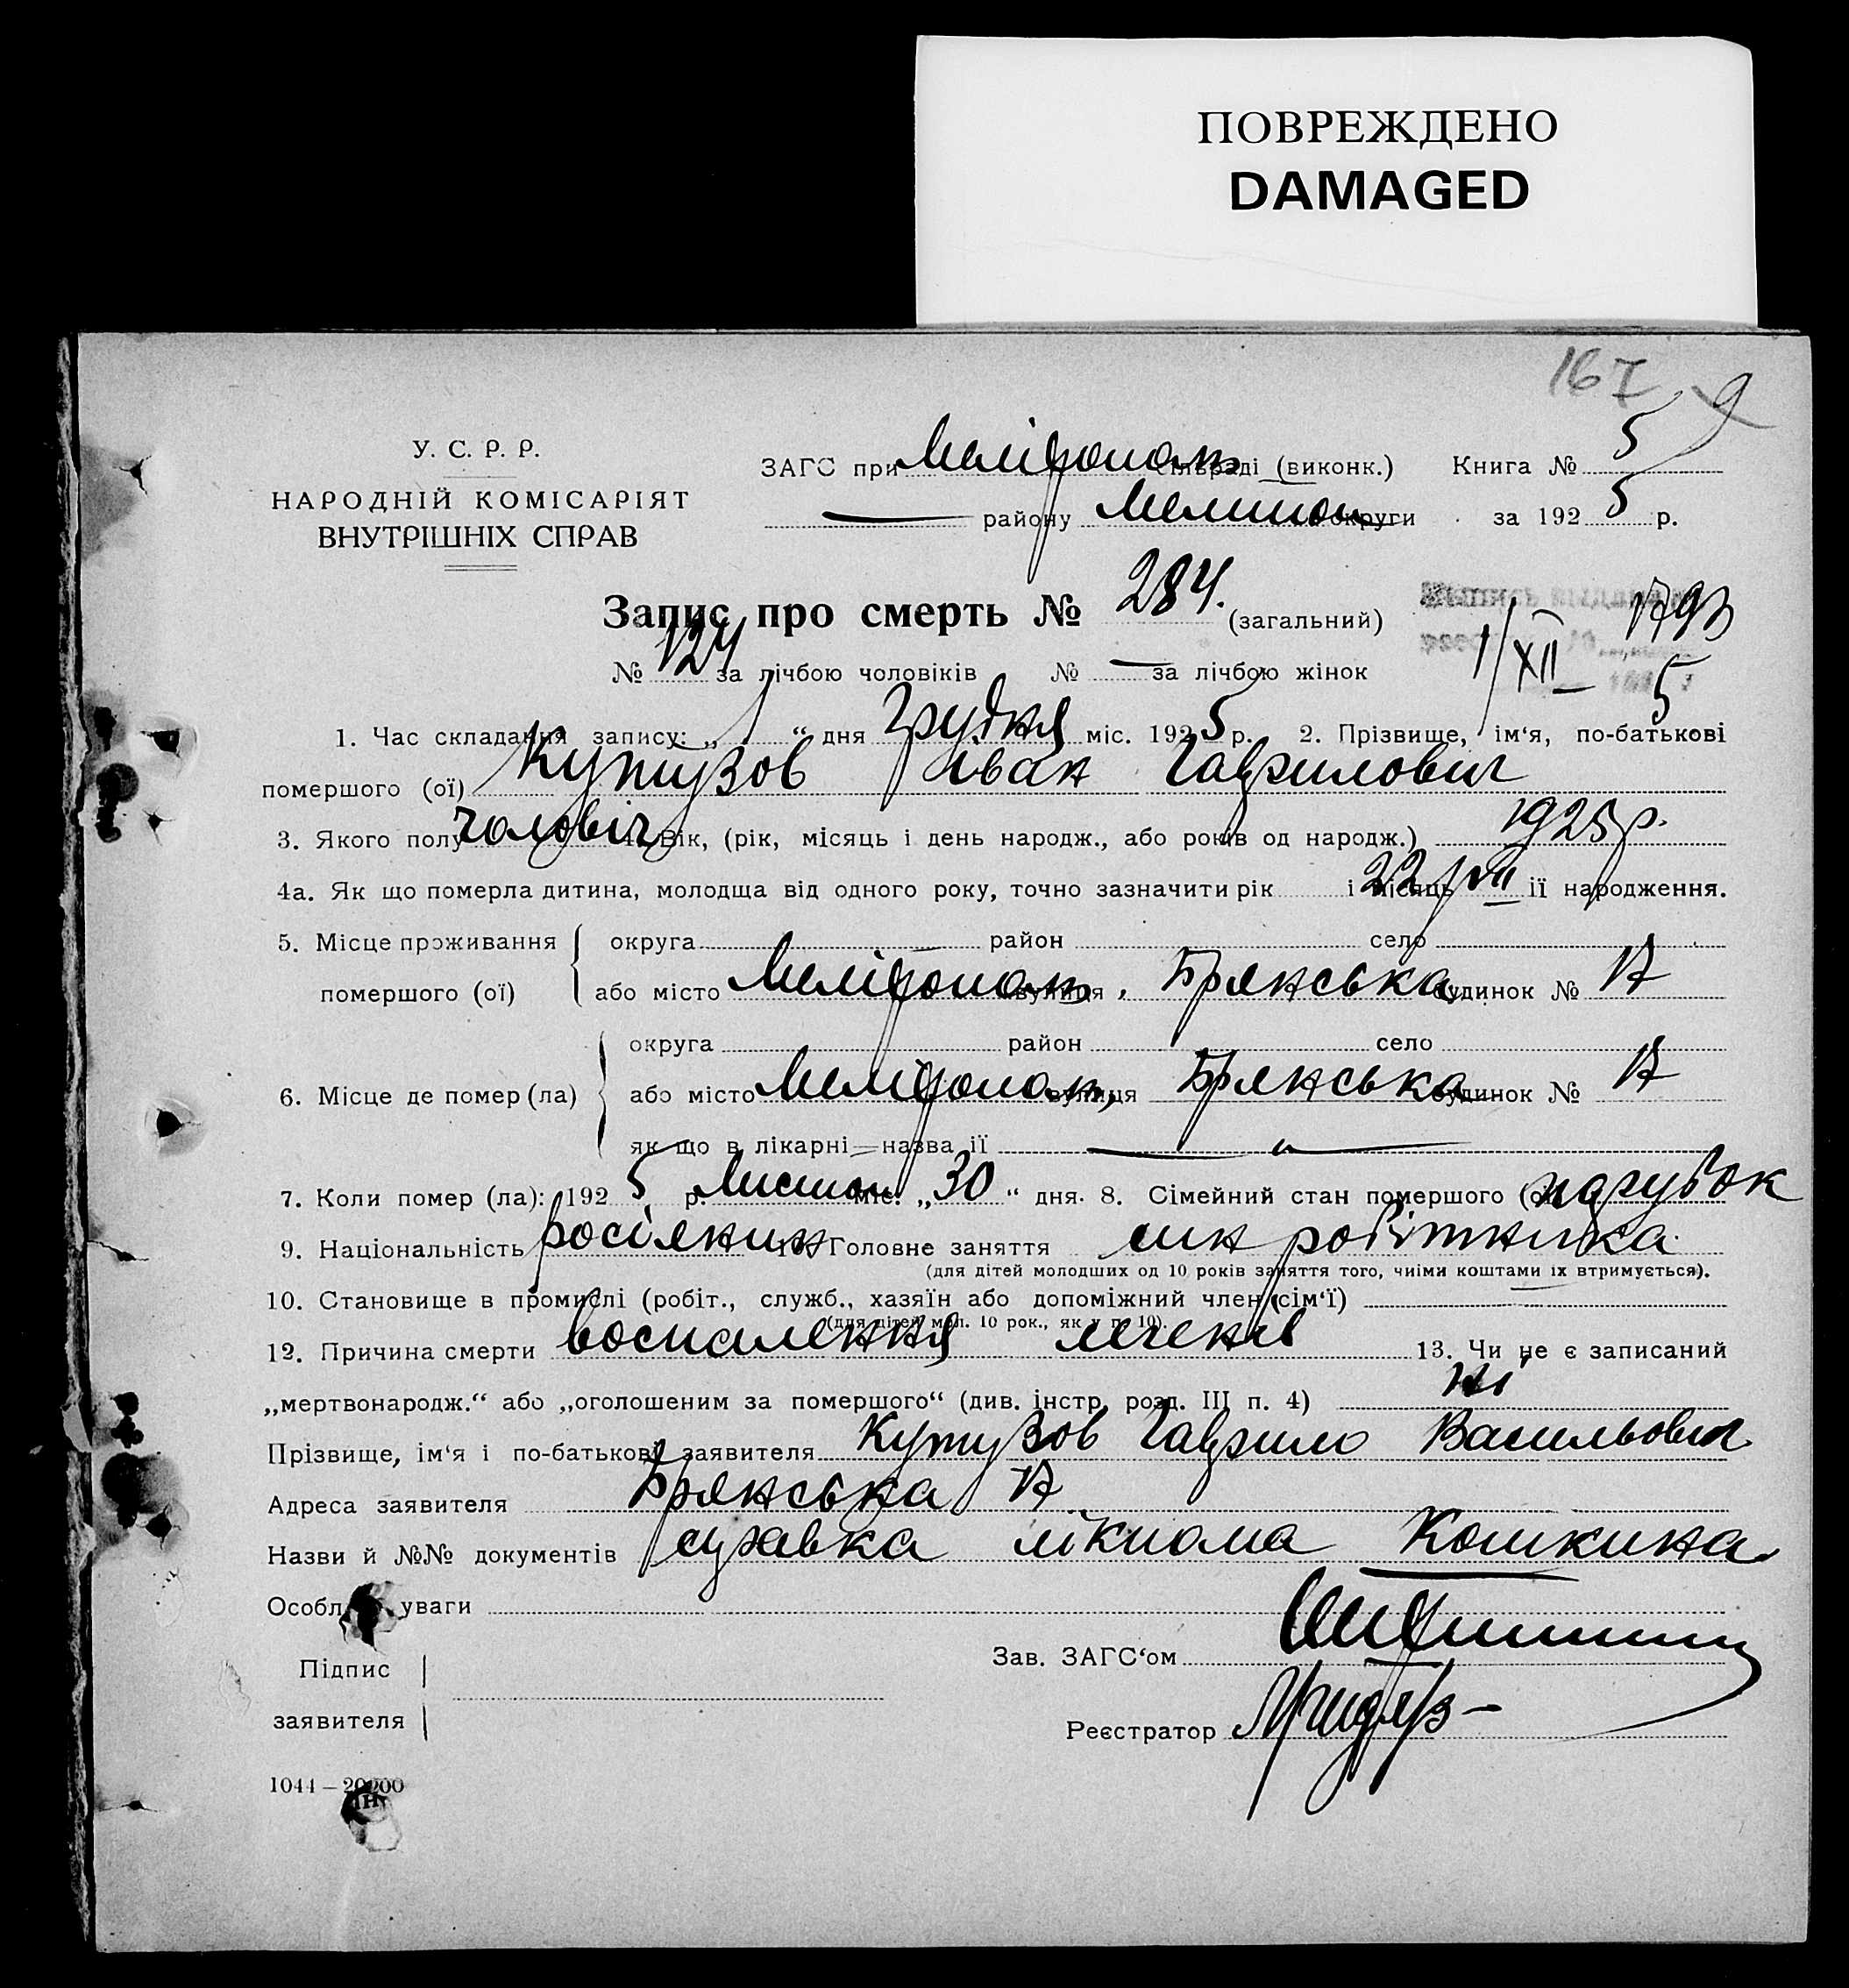 ПОВРЕЖДЕНО
DAMAGED
167
У. С. Р. Р.
НАРОДНІЙ КОМІСАРІЯТ
ВНУТРІШНІХ СПРАВ
ЗАГС при Мелітопольск міськраді (виконк.) Книга № 5
— району Мелитоп округи за 1925 р.
Запис про смерть № 284. (загальний)
№ 124 за лічбою чоловіків № — за лічбою жінок
1/XII 5
1. Час складання запису: „1“ дня Грудня міс. 1925 р. 2. Прізвище, ім‘я, по-батькові
помершого (ої) Кутузов Іван Гаврилович
3. Якого полу чоловіч 4. Вік, (рік, місяць і день народж., або років од народж.) 1925 р.
4а. Як що померла дитина, молодща від одного року, точно зазначити рік і місяць 22/VII її народження.
5. Місце проживання помершого (ої) округа район село
або місто Мелітополь, вулиця Брянська будинок № 17
6. Місце де помер (ла) округа район село
або місто Мелітополь, вулиця Брянська будинок № 17
як що в лікарні—назва її —
7. Коли помер (ла): 1925 р. Листоп міс. „30“ дня. 8. Сімейний стан помершого (ої) парубок
9. Національність росіянин 10. Головне заняття син робітника
(для дітей молодших од 10 років заняття того, чиіми коштами іх втримується).
10. Становище в промислі (робіт., служб., хазяїн або допоміжний член сім‘ї)
(для дітей мол. 10 рок., як у п. 10).
12. Причина смерти воспалення легенів 13. Чи не є записаний
„мертвонародж.“ або „оголошеним за помершого“ (див. інстр. розд. III п. 4) ні
Прізвище, ім‘я і по-батькові заявителя Кутузов Гаврило Васильович
Адреса заявителя Брянська 17
Назви й №№ документів справка лікпома Кошкина
Особливі уваги
Підпис заявителя
Зав. ЗАГС‘ом
Реєстратор
1044 — 20200